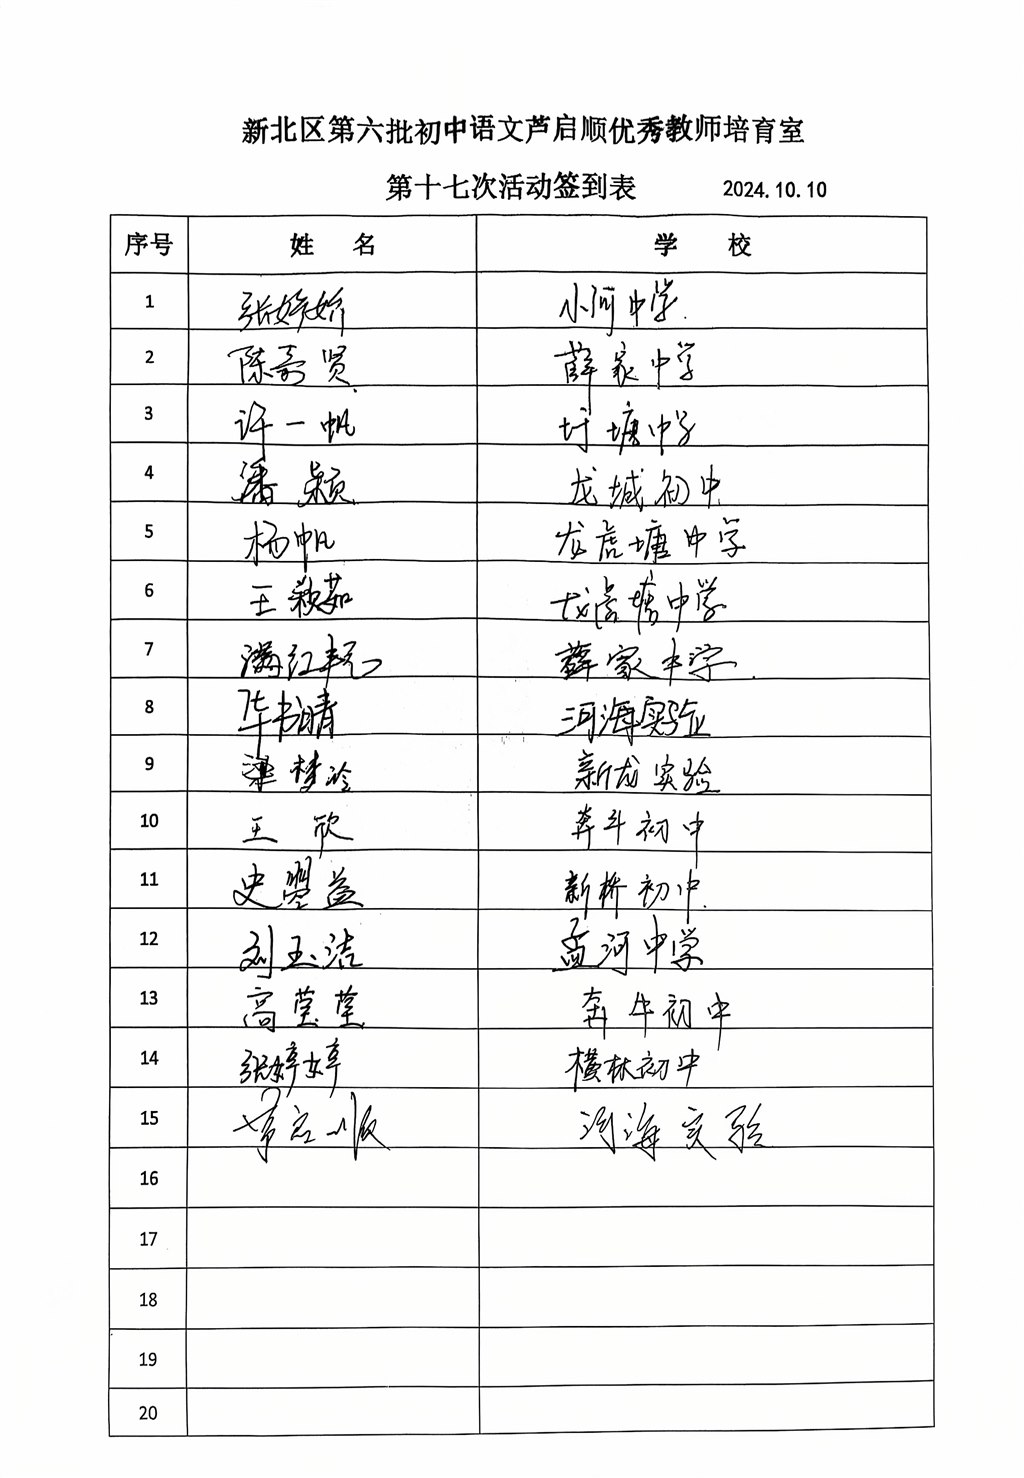 新北区第六批初中语文芦启顺优秀教师培育室
第十七次活动签到表 2024.10.10
序号 姓 名 学 校
1 张婷娇 小河中学
2 陈寿贤 薛家中学
3 许一帆 圩塘中学
4 潘颖 龙城初中
5 杨帆 龙虎塘中学
6 王秋茹 龙虎塘中学
7 满红艳 薛家中学
8 毕书晴 河海实验
9 梁梦冷 新龙实验
10 王欣 奔牛初中
11 史曌益 新桥初中
12 刘玉洁 孟河中学
13 高莹莹 奔牛初中
14 张婷婷 横林初中
15 芦启顺 河海实验
16
17
18
19
20